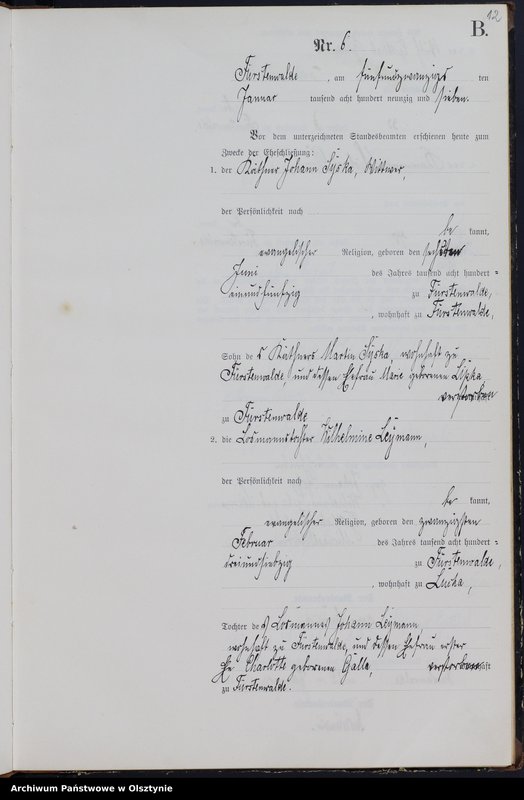 12
B.
Nr. 6.
Fürstenwalde, am fünfundzwanzigsten
Januar tausend acht hundert neunzig und sieben.
Vor dem unterzeichneten Standesbeamten erschienen heute zum
Zwecke der Eheschließung:
1. der Käthner Johann Syska, Wittwer,
der Persönlichkeit nach
be kannt,
evangelischer Religion, geboren den sechsten
Juni des Jahres tausend acht hundert
einundfünfzig zu Fürstenwalde,
, wohnhaft zu Fürstenwalde,
Sohn des Käthners Martin Syska, wohnhaft zu
Fürstenwalde, und dessen Ehefrau Marie geborenen
verstorben
zu Fürstenwalde
2. die Losmannstochter Wilhelmine Leymann,
der Persönlichkeit nach
be kannt,
evangelischer Religion, geboren den zwanzigsten
Februar des Jahres tausend acht hundert
dreiundsiebzig zu Fürstenwalde,
, wohnhaft zu Lucka,
Tochter des Losmannes Johann Leymann,
wohnhaft zu Fürstenwalde, und dessen Ehefrau erster
Ehe Charlotte geborenen Galla, verstorben
zu Fürstenwalde.
Archiwum Państwowe w Olsztynie